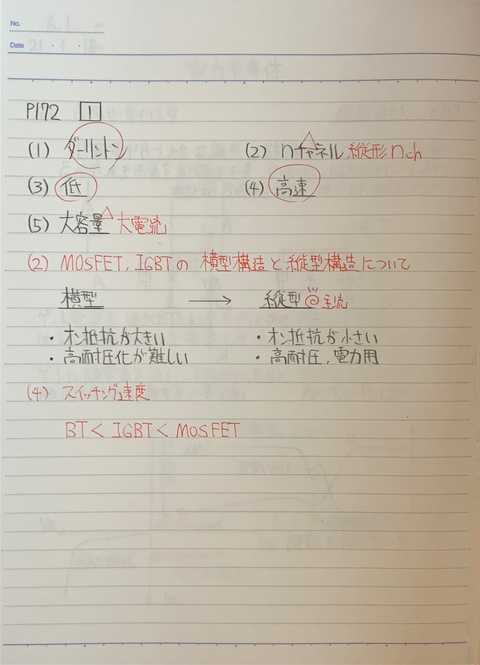 No.
Date
P172 1
(1) ダーリントン (2) nチャネル 縦形nch
(3) 低 (4) 高速
(5) 大容量 大電流
(2) MOSFET, IGBTの 横型構造と縦型構造について
横型 → 縦型 主流
・オン抵抗が大きい ・オン抵抗が小さい
・高耐圧化が難しい ・高耐圧, 電力用
(4) スイッチング速度
BT < IGBT < MOSFET